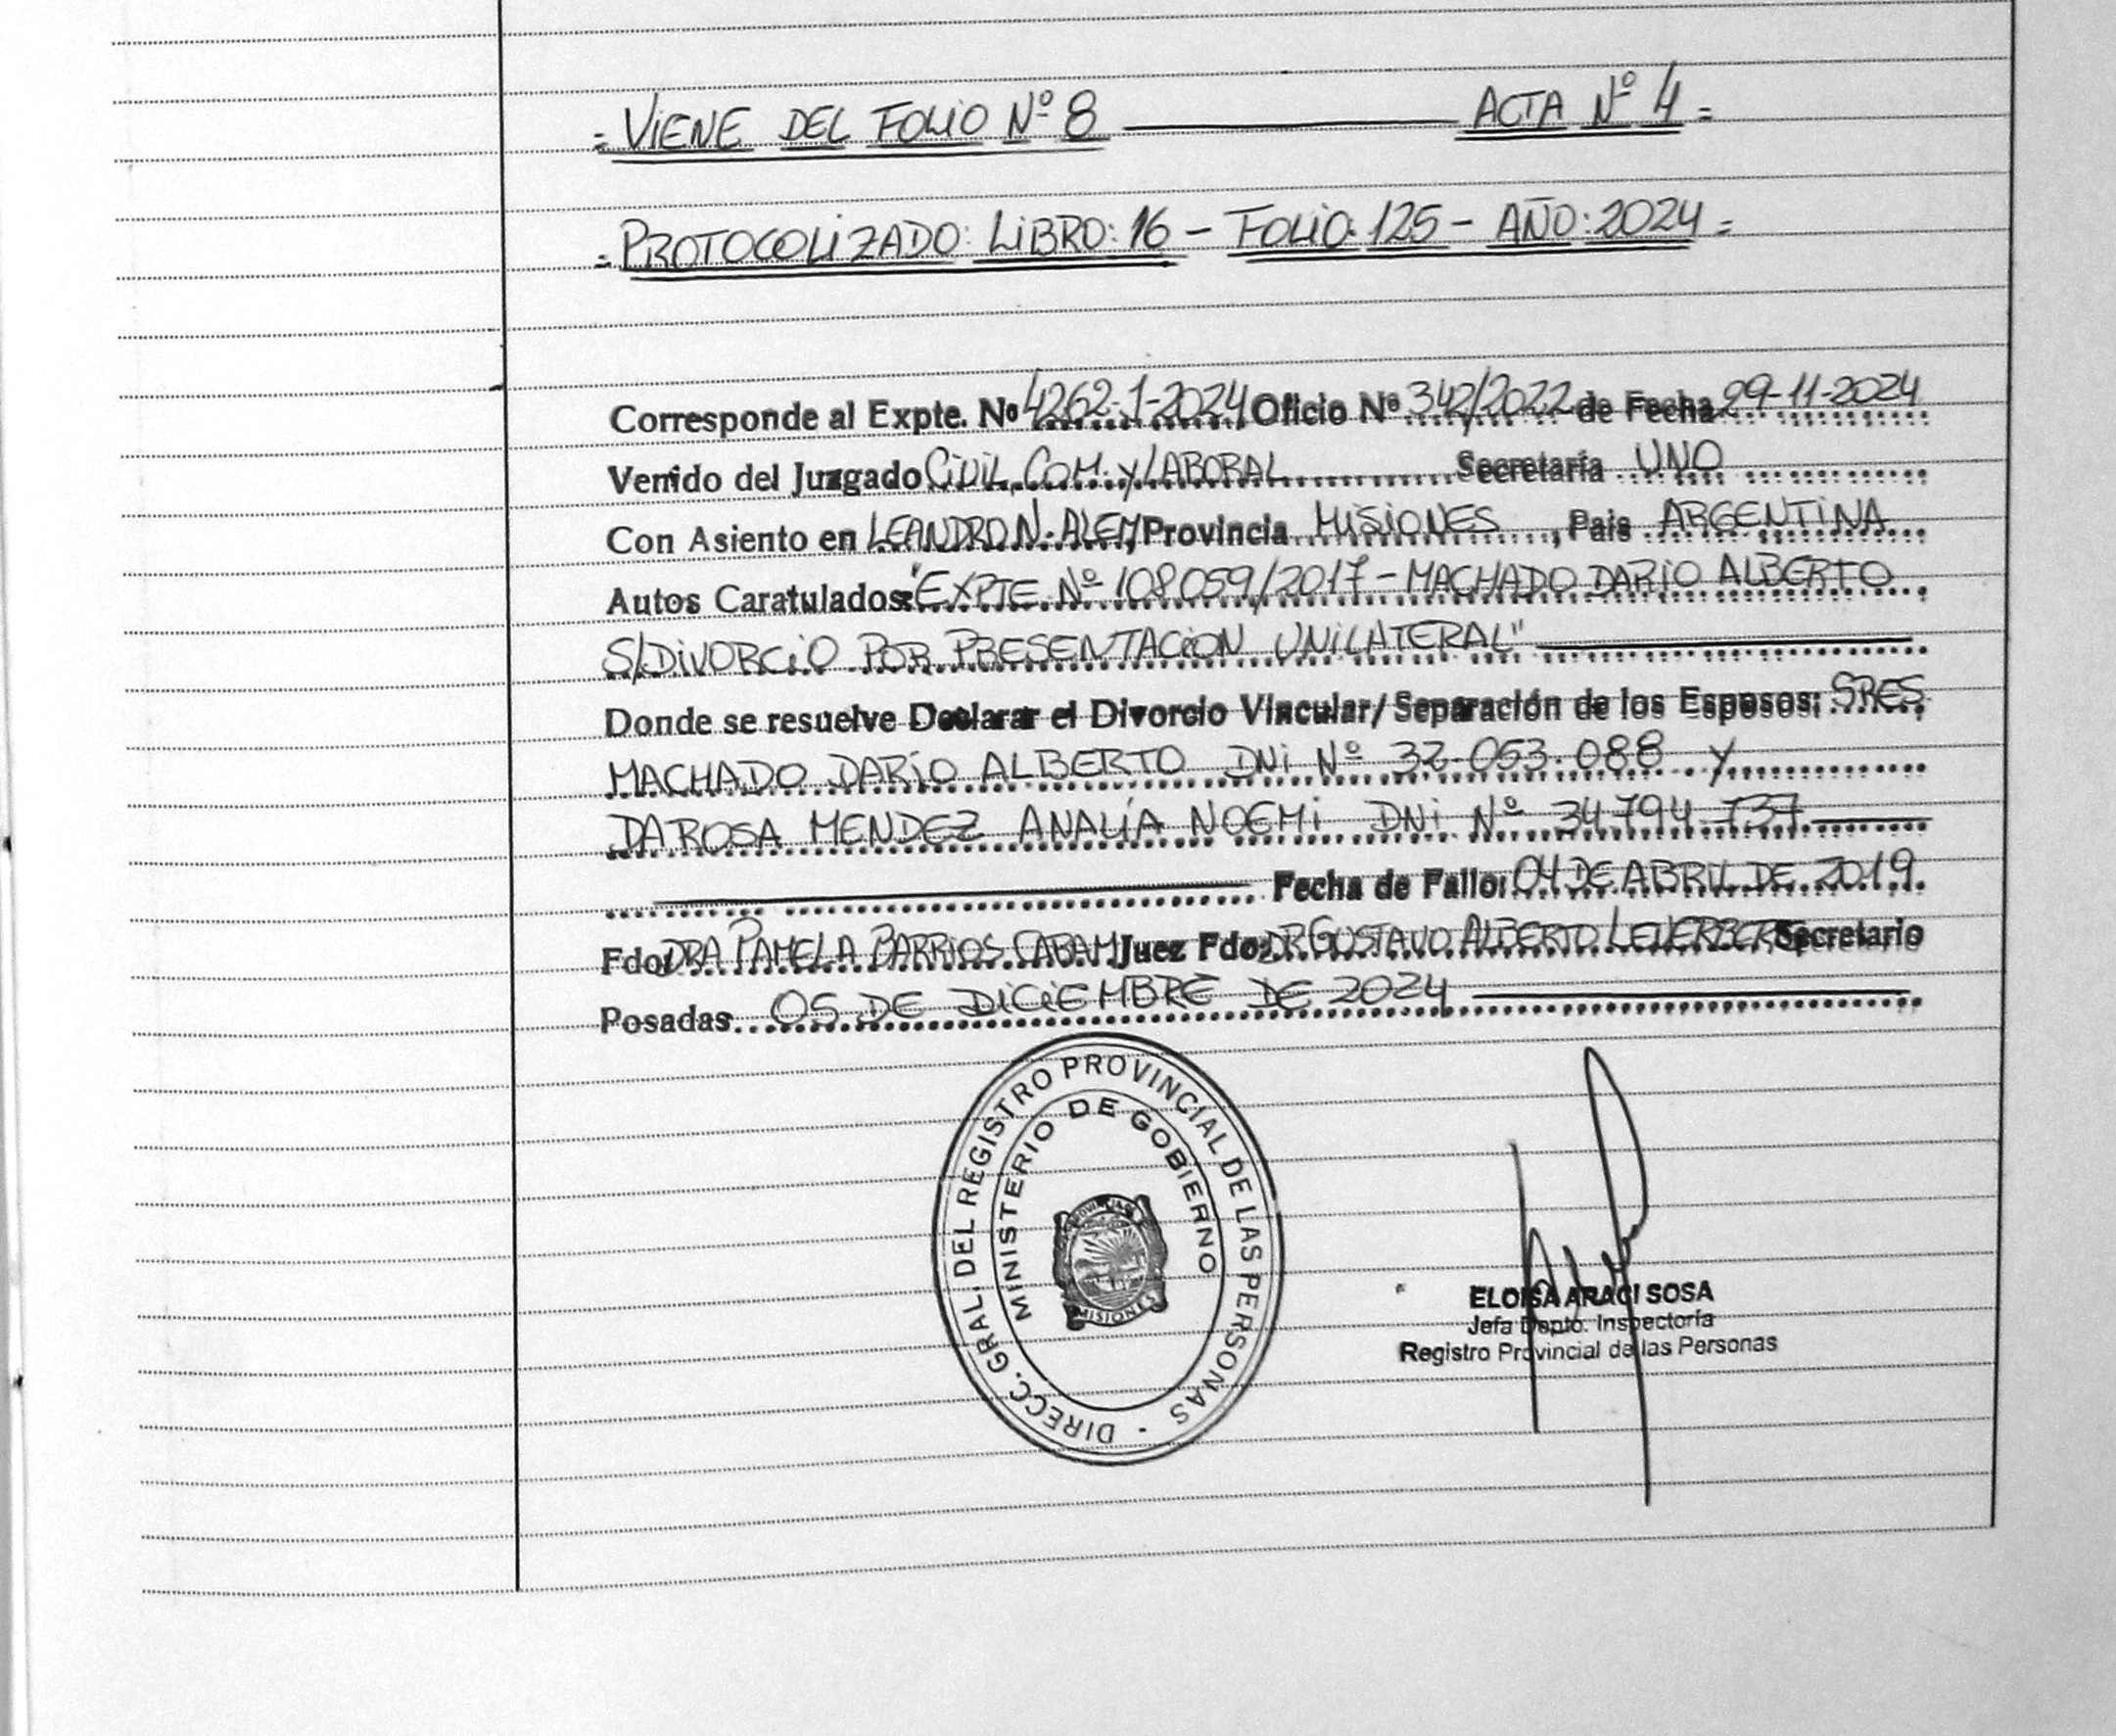 = VIENE DEL FOLIO Nº 8 ACTA Nº 4 =
= PROTOCOLIZADO: LIBRO: 16 - FOLIO: 125 - AÑO: 2024 =
Corresponde al Expte. Nº 4262-1-2024 Oficio Nº 342/2022 de Fecha 29-11-2024
Venido del Juzgado CIVIL, COM. y LABORAL Secretaría UNO
Con Asiento en LEANDRO N. ALEM, Provincia MISIONES, País ARGENTINA
Autos Caratulados: "EXPTE Nº 108059/2017 - MACHADO DARIO ALBERTO
S/DIVORCIO POR PRESENTACION UNILATERAL"
Donde se resuelve Declarar el Divorcio Vincular/ Separación de los Esposos: SRES.
MACHADO DARIO ALBERTO DNI Nº 32.053.088 y
DAROSA MENDEZ ANALÍA NOEMI DNI Nº 34.794.737
Fecha de Fallo: 04 DE ABRIL DE 2019
Fdo: DRA PAMELA BARRIOS Juez Fdo: DR GUSTAVO ALBERTO Secretario
Posadas 05 DE DICIEMBRE DE 2024
DIRECC. GRAL. DEL REGISTRO PROVINCIAL DE LAS PERSONAS -
MINISTERIO DE GOBIERNO
MISIONES
ELOISA ARACI SOSA
Jefa Depto. Inspectoría
Registro Provincial de las Personas